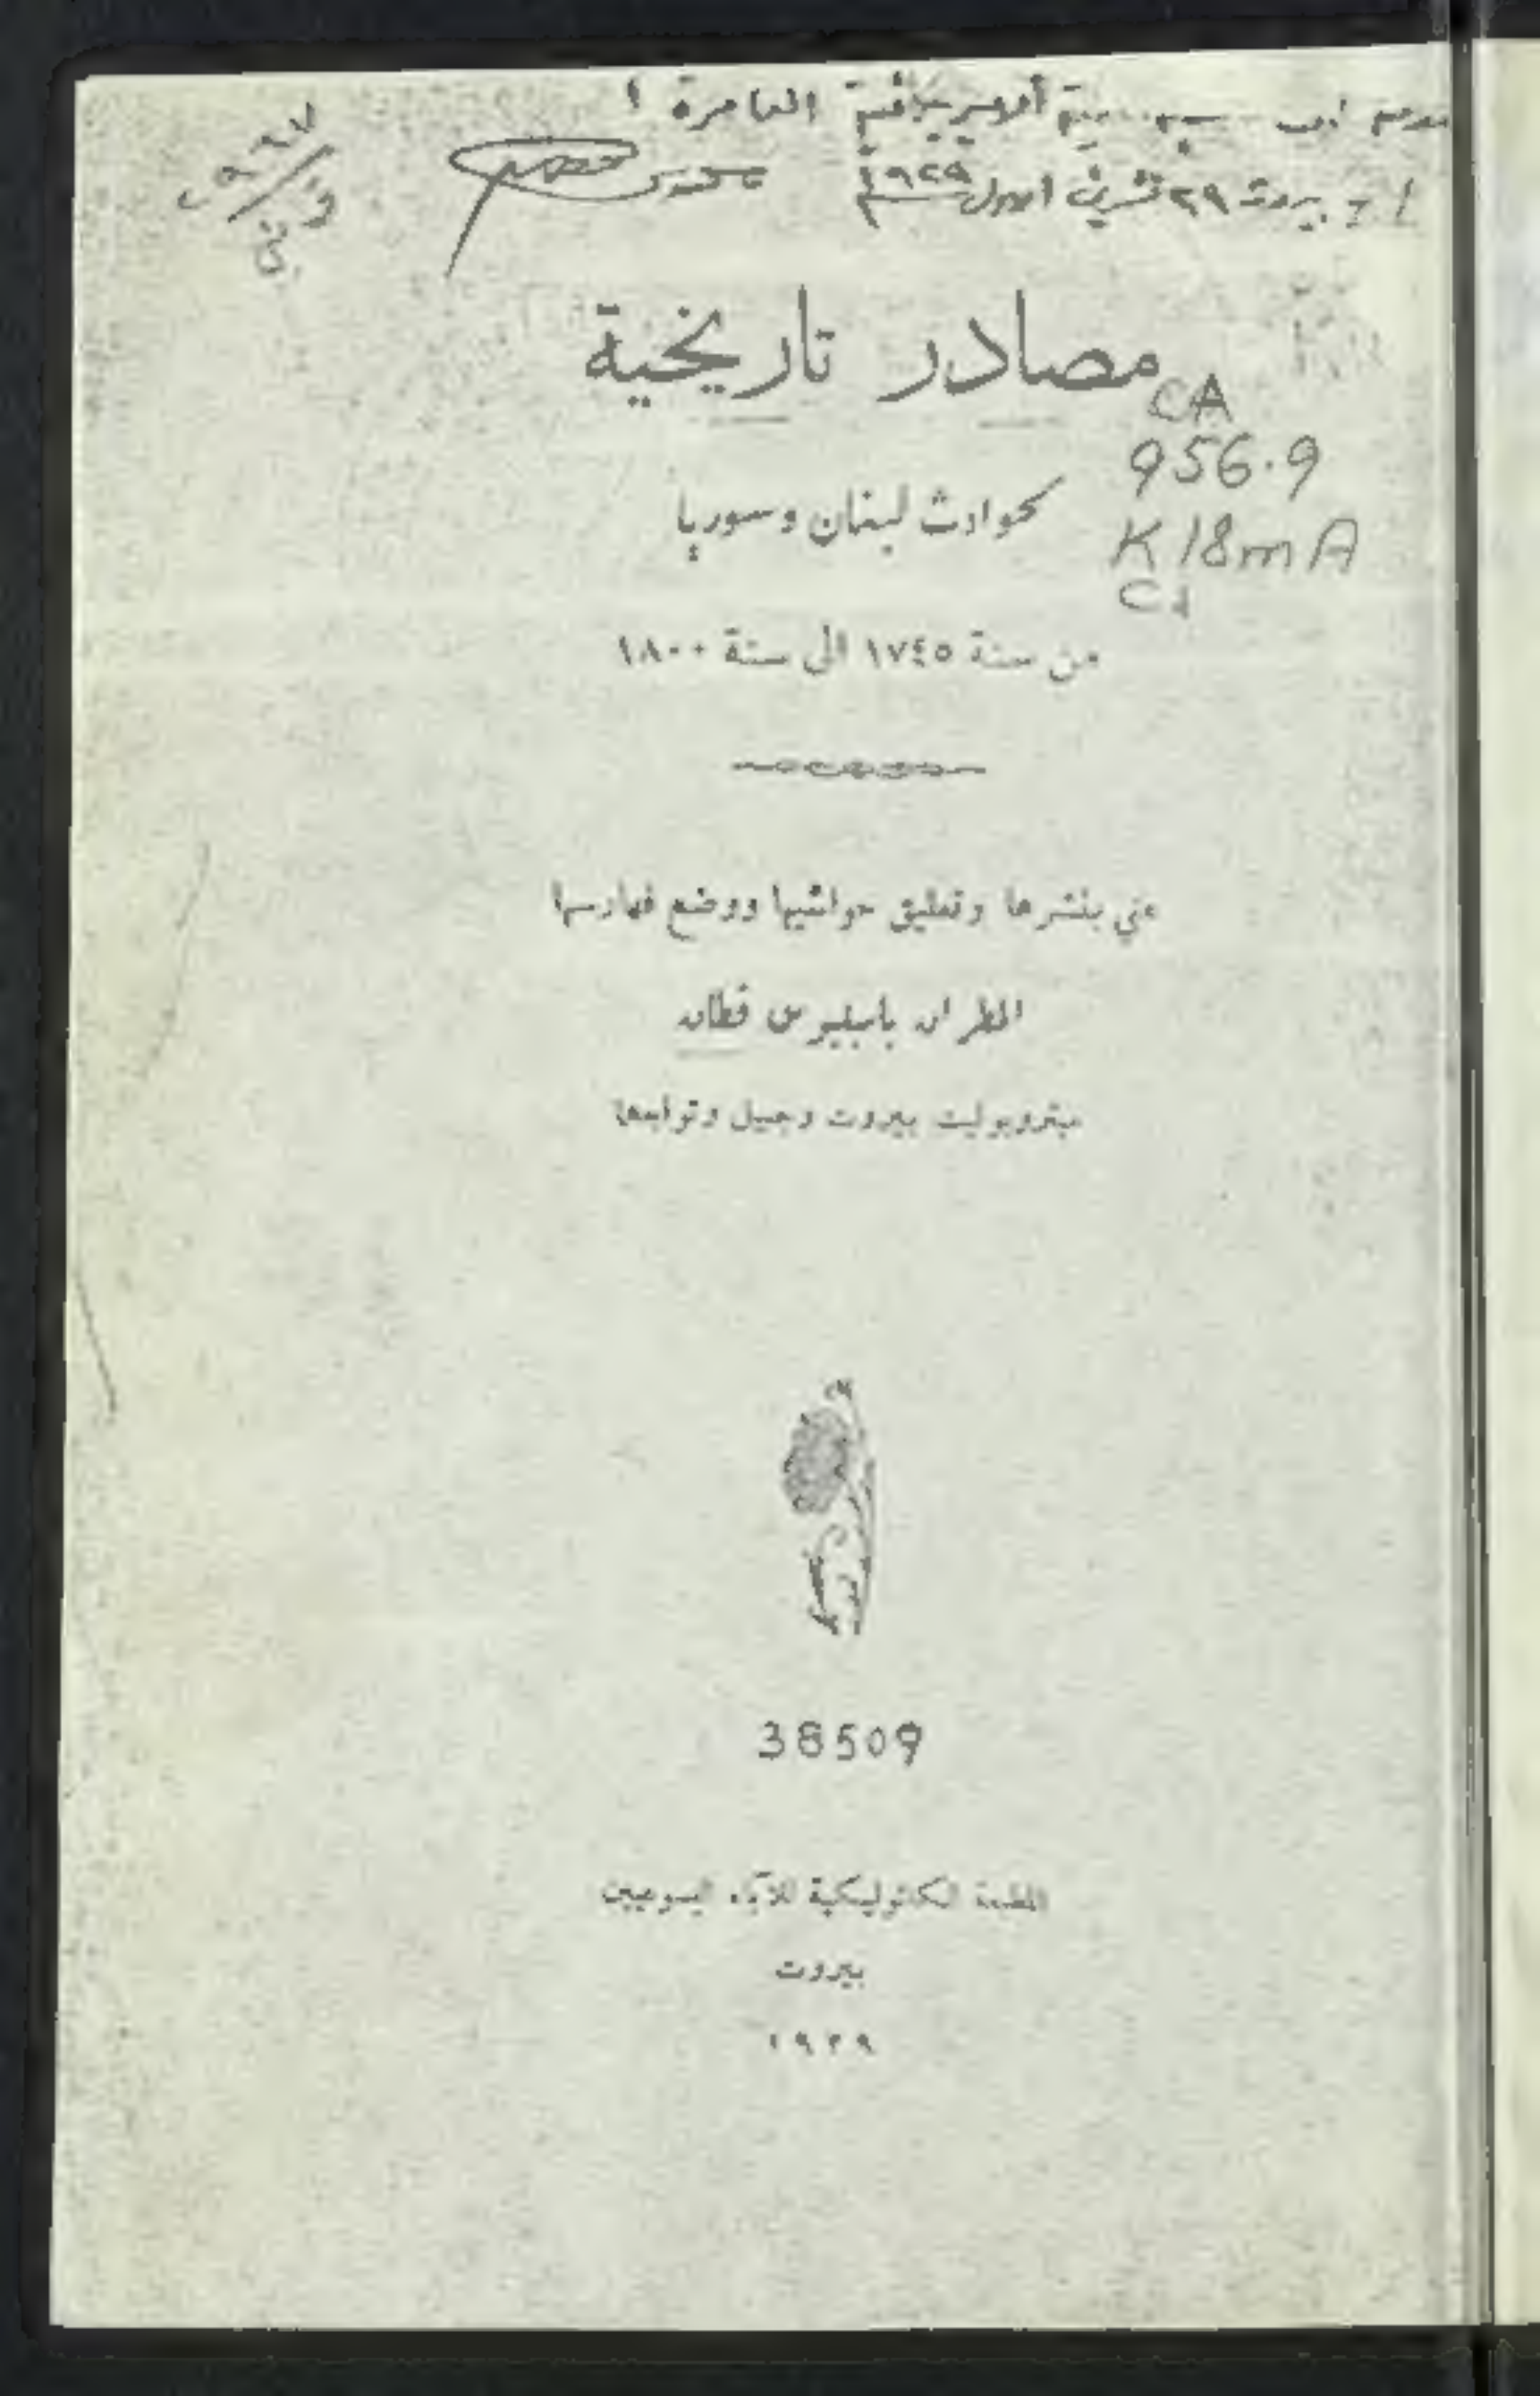 الاميركية العامرة
بيروت ٢٩ تشرين الاول ١٩٢٩
مصادر تاريخية
CA
956.9
K18mA
C1
لحوادث لبنان وسوريا
من سنة ١٧٤٥ الى سنة ١٨٠٠
عني بنشرها وتعليق حواشيها ووضع فهارسها
المطران باسيليوس قطان
ميتروبوليت بيروت وجبيل وتوابعها
38509
المطبعة الكاثوليكية للآباء اليسوعيين
بيروت
١٩٢٩